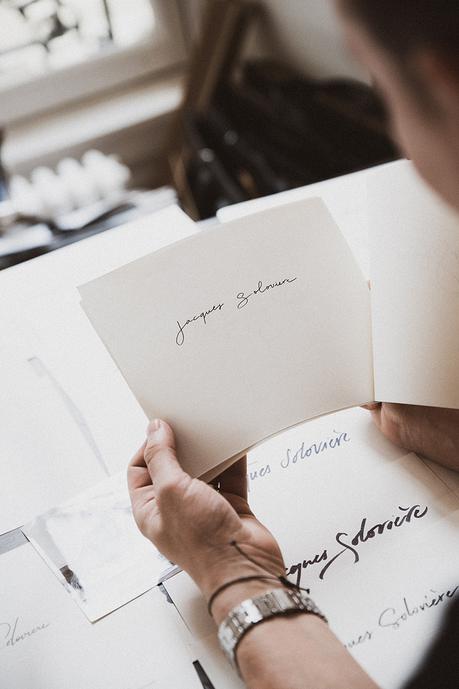 Jacques Solovière
ques Solovière
cques Solovière
ques Solovière
Solovière